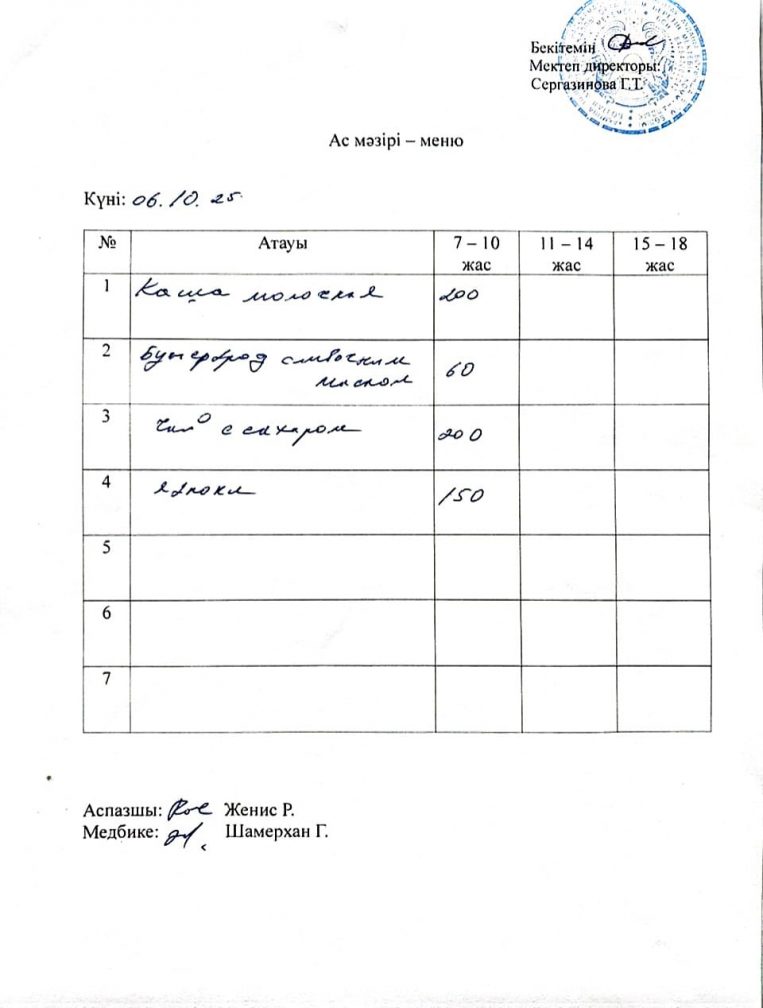 Бекітемін
Мектеп директоры:
Сергазинова Г.Т.
Ас мәзірі – меню
Күні: 06.10.25.
№ Атауы 7 – 10 жас 11 – 14 жас 15 – 18 жас
1 Каша молочная 200
2 Бутерброд сливочным
маслом 60
3 Чай с сахаром 200
4 яблоки 150
5
6
7
Аспазшы: Женис Р.
Медбике: Шамерхан Г.